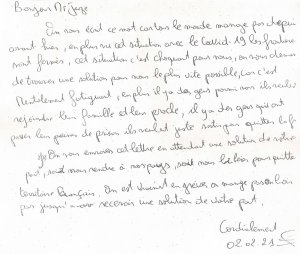 Bonjour Mr Juge
On vous écrit ce mot car tous le monde mange pas depuis
avant hier, en plus cet situation avec le Covid-19 les frontière
sont fermés, cet situation c'est choquant pour nous, on vous demande
de trouver une solution pour nous le plus vite possible, car c'est
mentalement fatiguant, en plus il y a des gens parmi nous ils veulent
rejoindre leur famille et leur proche, il y a des gens qui ont
purger leur peines de prison ils veulent juste sortir pour quitter la F
On vous envoies cet lettre en attendant une solution de votre
part, soit nous rendre à nos pays, soit nous libérés pour quitter
territoire Français. On est vraiment en grèves on mange pas on boit
pas jusqu'à avoir recevoir une solution de votre part.
Cordialement
02.02.21